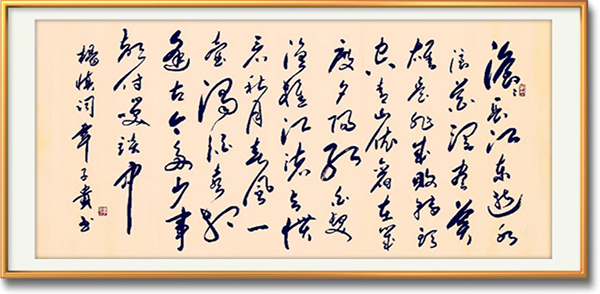 滚々长江东逝水
浪花淘尽英
雄是非成败转头
空青山依旧在几
度夕阳红白发
渔樵江渚上惯
看秋月春风一
壶浊酒喜相
逢古今多少事
都付笑谈中
杨慎词 子贵书